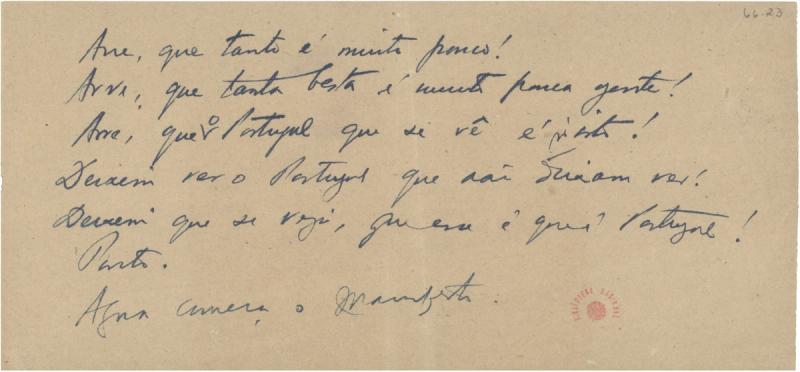 66-23
Arre, que tanto é muito pouco!
Arre, que tanta besta é muito pouca gente!
Arre, que o Portugal que se vê é isto!
Deixem ver o Portugal que não deixam ver!
Deixem que se veja, que esse é que é Portugal!
Ponto.
Agora começa o Manifesto.
BIBLIOTECA NACIONAL